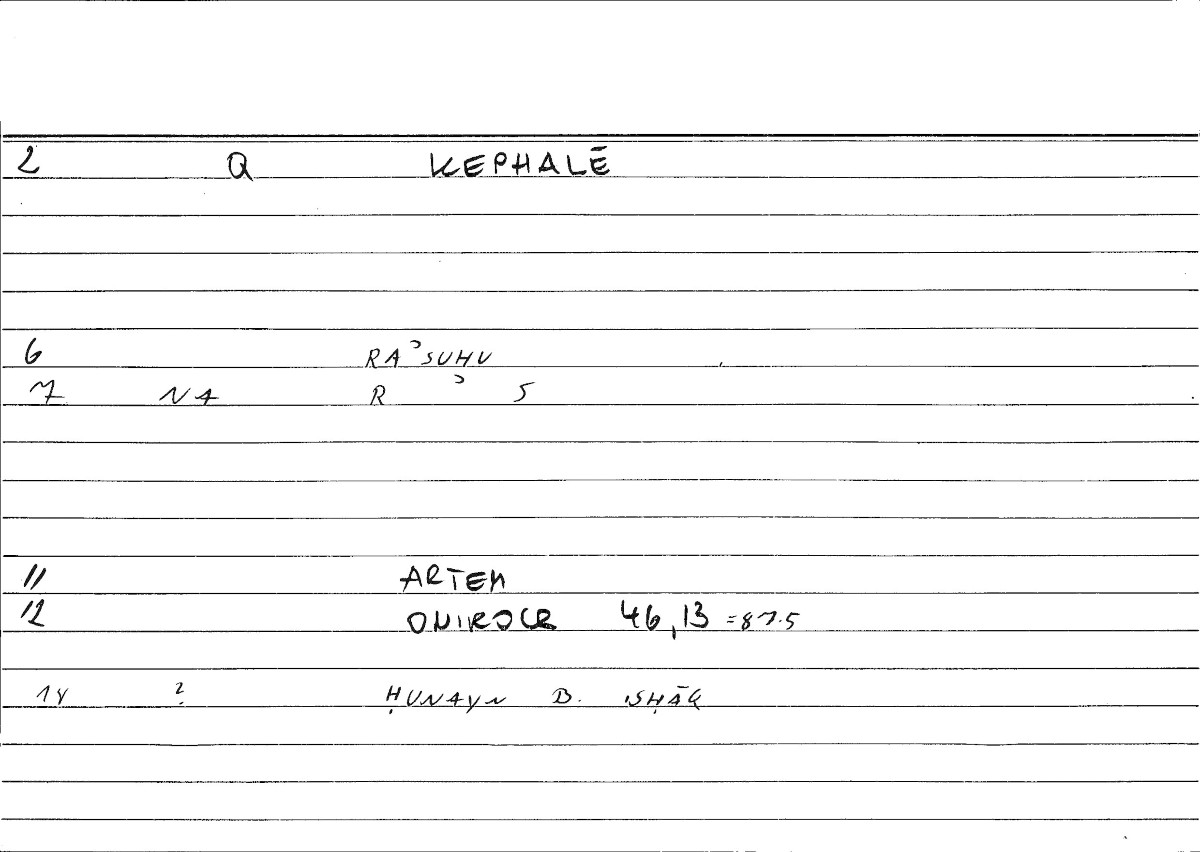 2 Q KEPHALĒ
6 RAʾSUHU
7 NA R ʾ S
11 ARTEM
12 ONIROCR 46,13 =87.5
14 ? ḤUNAYN B. ISḤĀQ